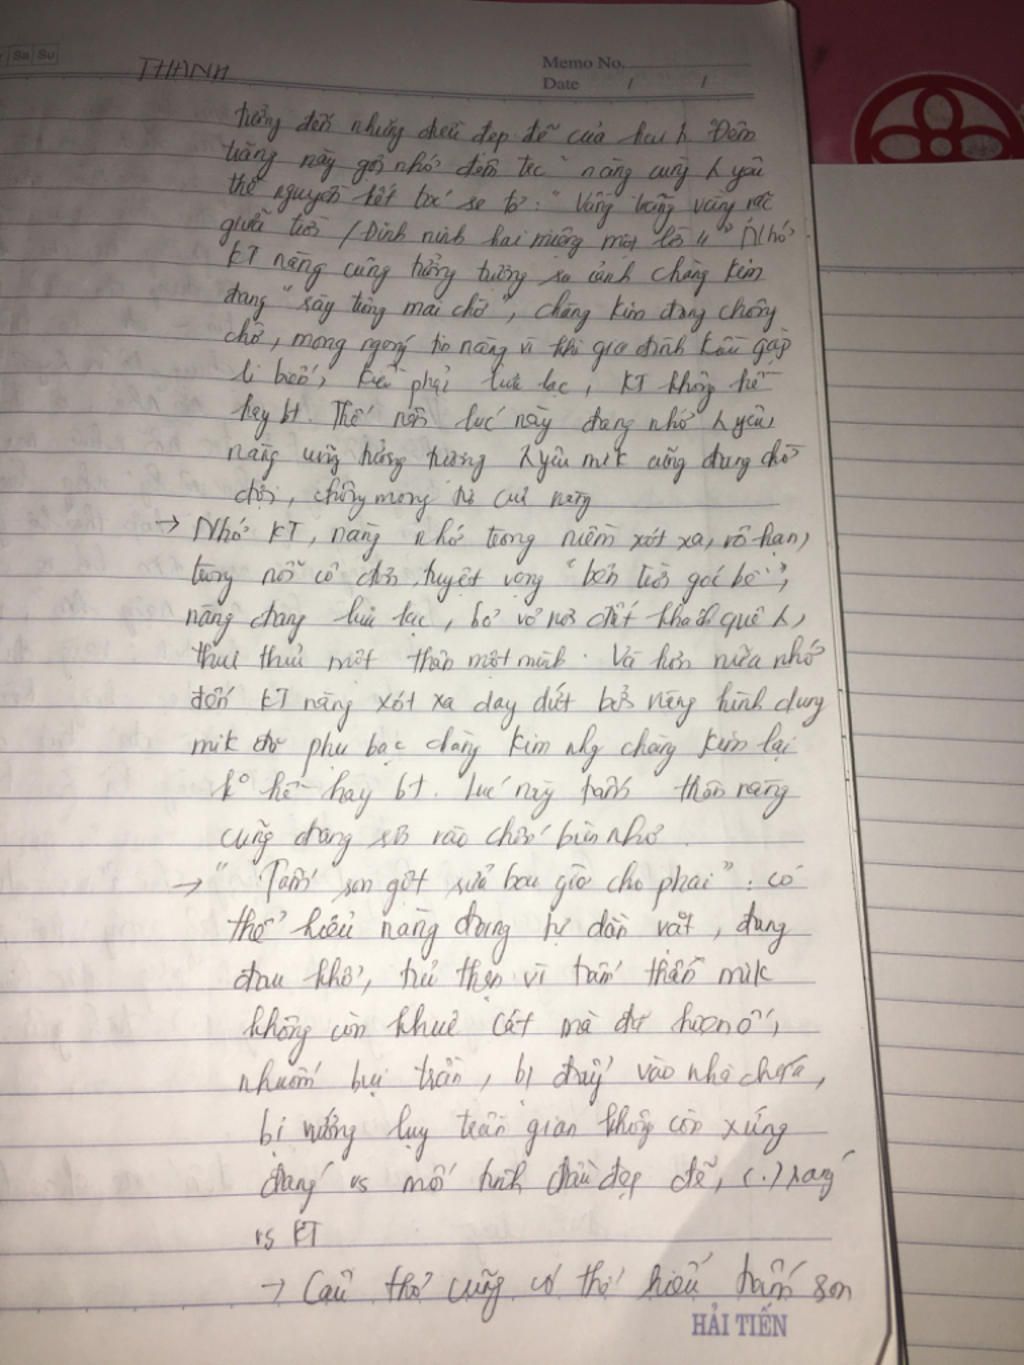 Sa Su
THANH
Memo No.
Date / /
tưởng đến những điều đẹp đẽ của hai h. Đêm
trăng này gợi nhớ đêm trc nàng cùng ng yêu
thề nguyền kết tóc se tơ: "Vầng trăng vằng vặc
giữa trời / Đinh ninh hai miệng một lời " Nhớ
KT nàng cũng tưởng tượng ra cảnh chàng Kim
đang " rày trông mai chờ ", chàng Kim đang chông
chờ, mong ngóng tin nàng vì khi gia đình Kiều gặp
li biến, Kiều phải lưu lạc, KT không hề
hay bt. Thế nên lúc này đang nhớ ng yêu,
nàng cũng tưởng tượng ng yêu mik cũng đang chờ
đợi, chông mong tin của nàng
→ Nhớ KT, nàng nhớ trong niềm xót xa, vô hạn,
trong nỗi cô đơn, tuyệt vọng "bên trời góc bể",
nàng đang lưu lạc, bơ vơ nơi đất khách quê ng,
thui thủi một thân một mình. Và hơn nữa nhớ
đến KT nàng xót xa day dứt bởi nàng hình dung
mik đã phụ bạc chàng Kim nhg chàng Kim lại
ko hề hay bt. Lúc này thân nàng
cũng đang rơi vào chốn bùn nhơ.
→ " Tấm son gột rửa bao giờ cho phai" : có
thể hiểu nàng đang tự dằn vặt, đang
đau khổ, tủi thẹn vì tấm thân mik
không còn khuê cát mà đã hoen ố,
nhuốm bụi trần, bị đẩy vào nhà chứa,
bị vướng lụy trần gian không còn xứng
đáng vs mối tình đầu đẹp đẽ, (.) xáng
vs KT
→ Câu thơ cũng có thể hiểu tấm son
HẢI TIẾN